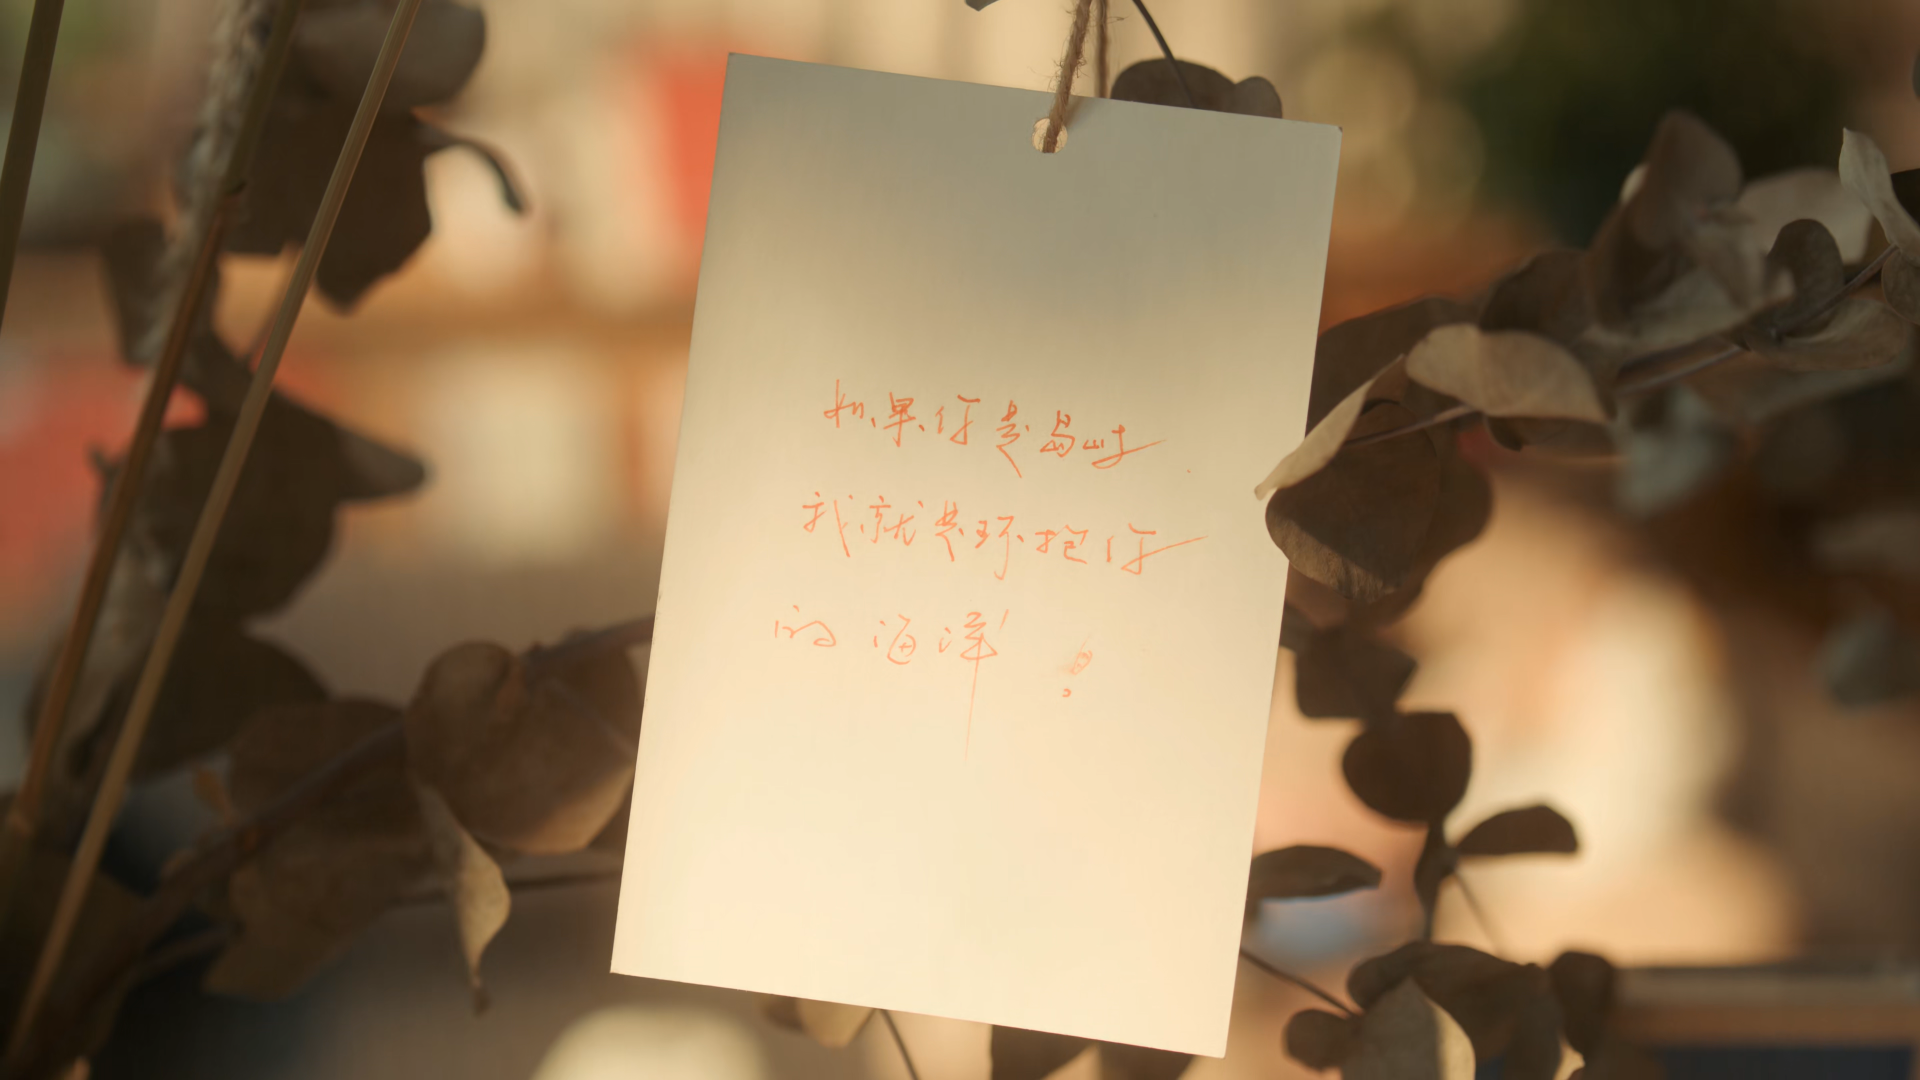 如果你是岛屿
我就是环抱你
的海洋！